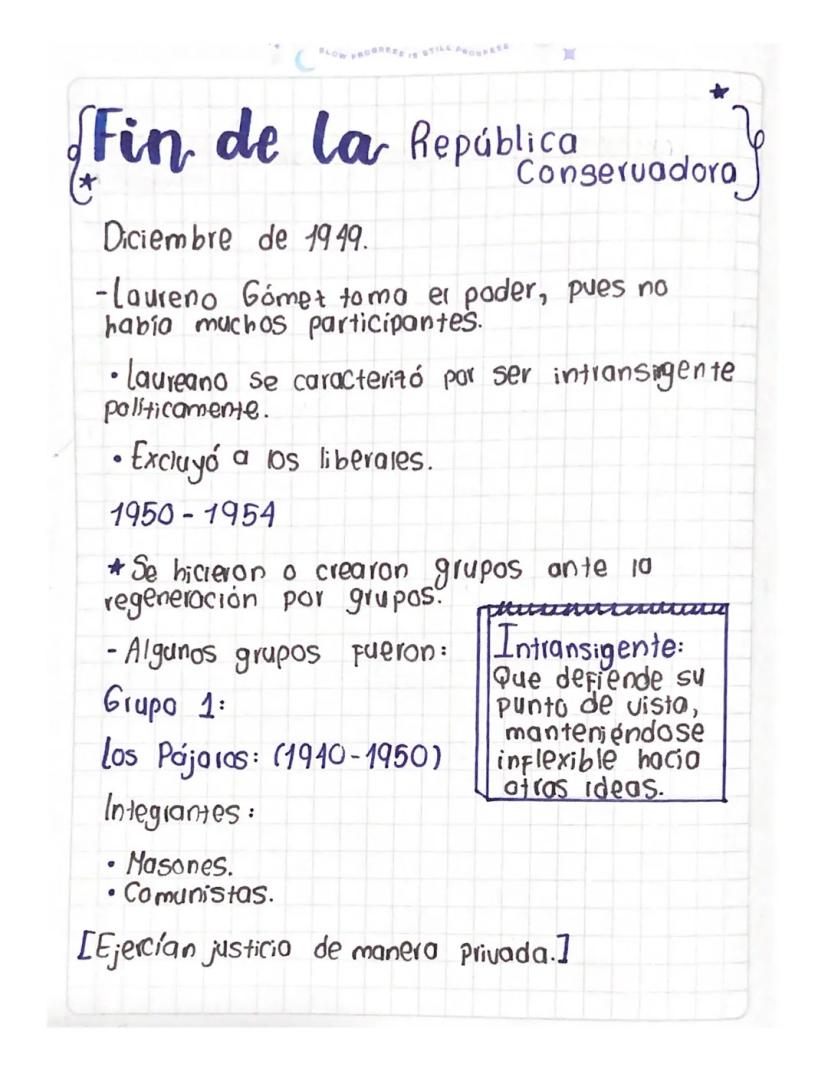 SLOW PROGRESS IS STILL PROGRESS
Fin de la República
Conservadora
Diciembre de 1949.
-Laureno Gómez tomo el poder, pues no
había muchos participantes.
• Laureano se caracterizó por ser intransigente
políticamente.
• Excluyó a los liberales.
1950 - 1954
★ Se hicieron o crearon grupos ante la
regeneración por grupos.
- Algunos grupos fueron:
Grupo 1:
Los Pájaros: (1940-1950)
Integrantes:
• Masones.
• Comunistas.
[Ejercían justicia de manera privada.]
Intransigente:
Que defiende su
punto de vista,
manteniéndose
inflexible hacia
otras ideas.